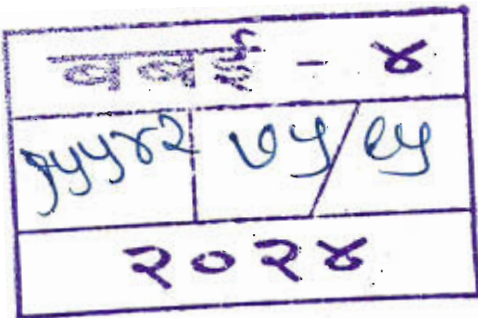 बबई - ४
१५५४२ ७५/९५
२०२४